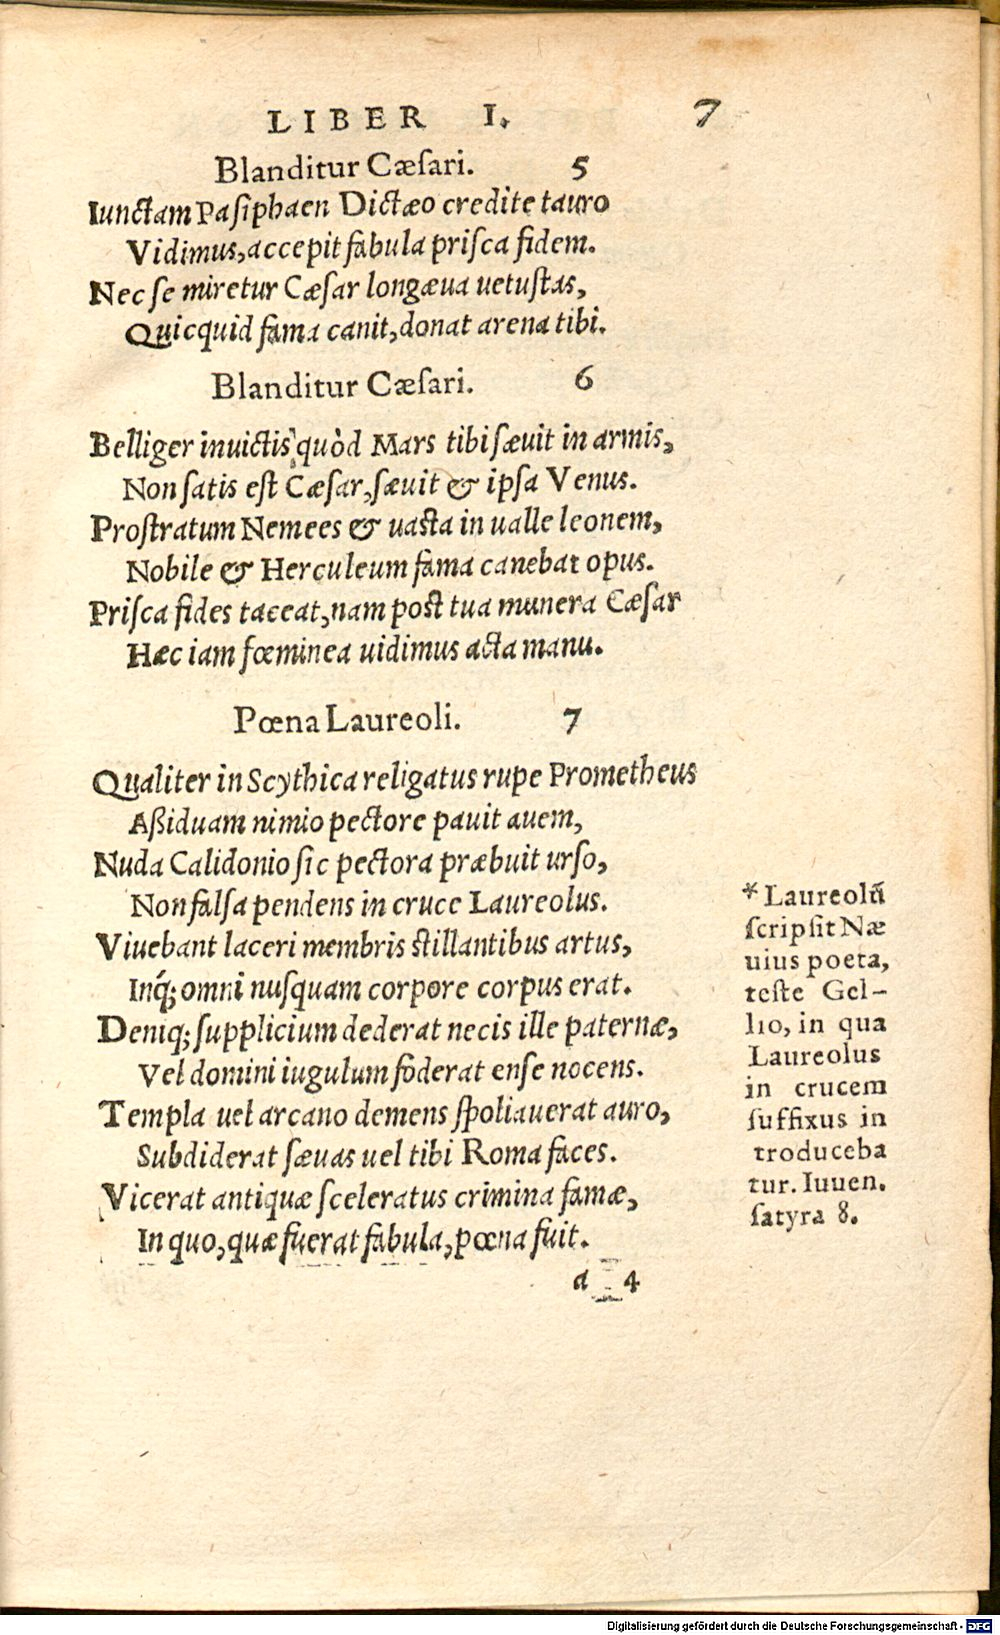 LIBER I. 7
Blanditur Cæſari. 5
Iunctam Paſiphaen Dictæo credite tauro
Vidimus, accepit fabula priſca fidem.
Nec ſe miretur Cæſar longæua uetuſtas,
Quicquid fama canit, donat arena tibi.
Blanditur Cæſari. 6
Belliger inuictis quòd Mars tibi ſæuit in armis,
Non ſatis eſt Cæſar, ſæuit & ipſa Venus.
Proſtratum Nemees & uaſta in ualle leonem,
Nobile & Herculeum fama canebat opus.
Priſca fides taceat, nam poſt tua munera Cæſar
Hæc iam fœminea uidimus acta manu.
Pœna Laureoli. 7
Qualiter in Scythica religatus rupe Prometheus
Aßiduam nimio pectore pauit auem,
Nuda Calidonio ſic pectora præbuit urſo,
Non falſa pendens in cruce Laureolus.
Viuebant laceri membris ſtillantibus artus,
Inq́; omni nuſquam corpore corpus erat.
Deniq; ſupplicium dederat necis ille paternæ,
Vel domini iugulum foderat enſe nocens.
Templa uel arcano demens ſpoliauerat auro,
Subdiderat ſæuas uel tibi Roma faces.
Vicerat antiquæ ſceleratus crimina famæ,
In quo, quæ fuerat fabula, pœna fuit.
* Laureolũ
ſcripſit Næ
uius poeta,
teſte Gel-
lio, in qua
Laureolus
in crucem
ſuffixus in
troduceba
tur. Iuuen.
ſatyra 8.
a 4
Digitalisierung gefördert durch die Deutsche Forschungsgemeinschaft - DFG